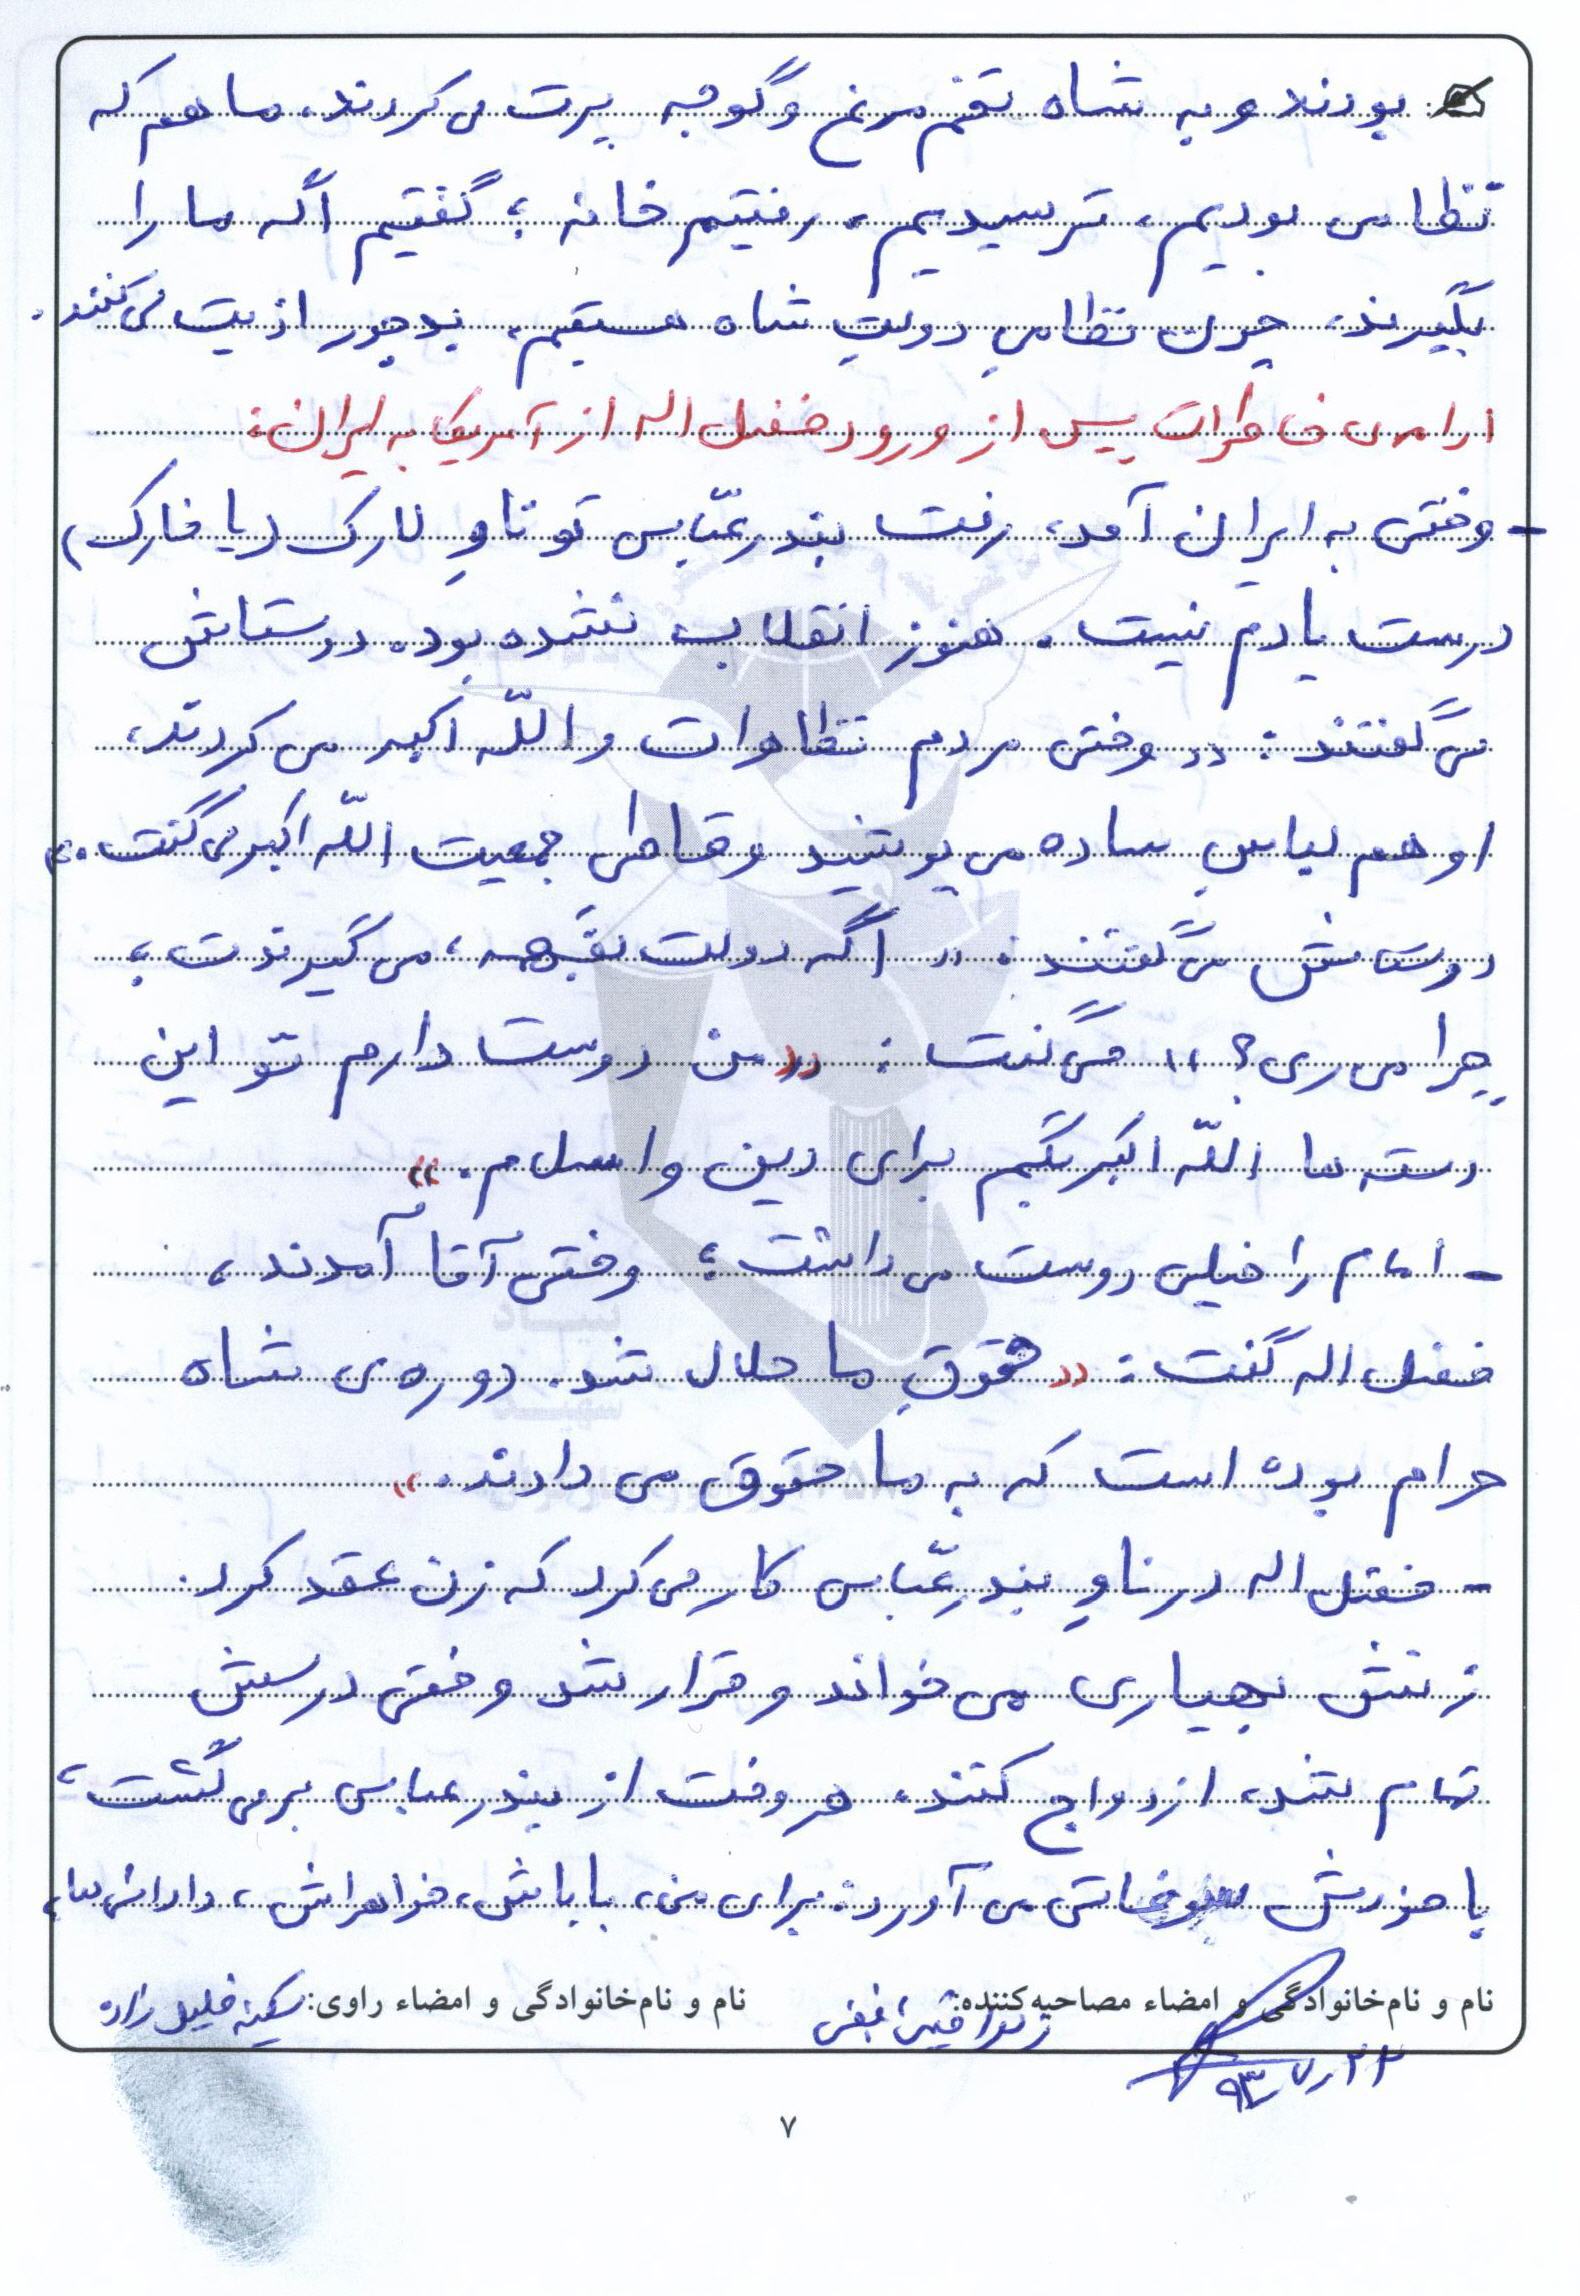 بودند و به شاه تخم مرغ و گوجه پرت می‌کردند، ما هم که
نظامی بودیم، ترسیدیم، رفتیم خانه؛ گفتیم اگه ما را
بگیرند، چون نظامیِ دولتِ شاه هستیم، بدجور اذیت می‌کنند.
ادامه‌ی خاطرات پس از ورود فضل اله از آمریکا به ایران:
- وقتی به ایران آمد، رفت بندرعبّاس تو ناوِ لارک (یا خارک)
درست یادم نیست. هنوز انقلاب نشده بود. دوستاش
می‌گفتند: «وقتی مردم تظاهرات و اللّه اکبر می‌کردند،
او هم لباسِ ساده می‌پوشید و قاطی جمعیت اللّه اکبر می‌گفت.»
دوستاش می‌گفتند: «اگه دولت بفهمه، می‌گیرندت؛
چرا می‌ری؟» می‌گفت: «من دوست دارم تو این
دسته ها اللّه اکبر بگم برای دین و اسلام.»
- امام را خیلی دوست می‌داشت؛ وقتی آقا آمدند،
فضل اله گفت: «حقوقِ ما حلال شد. دوره‌ی شاه
حرام بوده است که به ما حقوق می‌دادند.»
- فضل اله در ناوِ بندرعبّاس کار می‌کرد که زن عقد کرد.
زنش بهیاری می‌خواند و قرار شد وقتی درسش
تمام شد، ازدواج کنند. هر وقت از بندرعباس برمی‌گشت،
با خودش سوغاتی می‌آورد: برای من، باباش، خواهراش، داداش‌ها،
نام و نام‌خانوادگی و امضاء مصاحبه‌کننده:
نام و نام‌خانوادگی و امضاء راوی: سکینه خلیل زاده
۹۳/۷/۲۲
۷